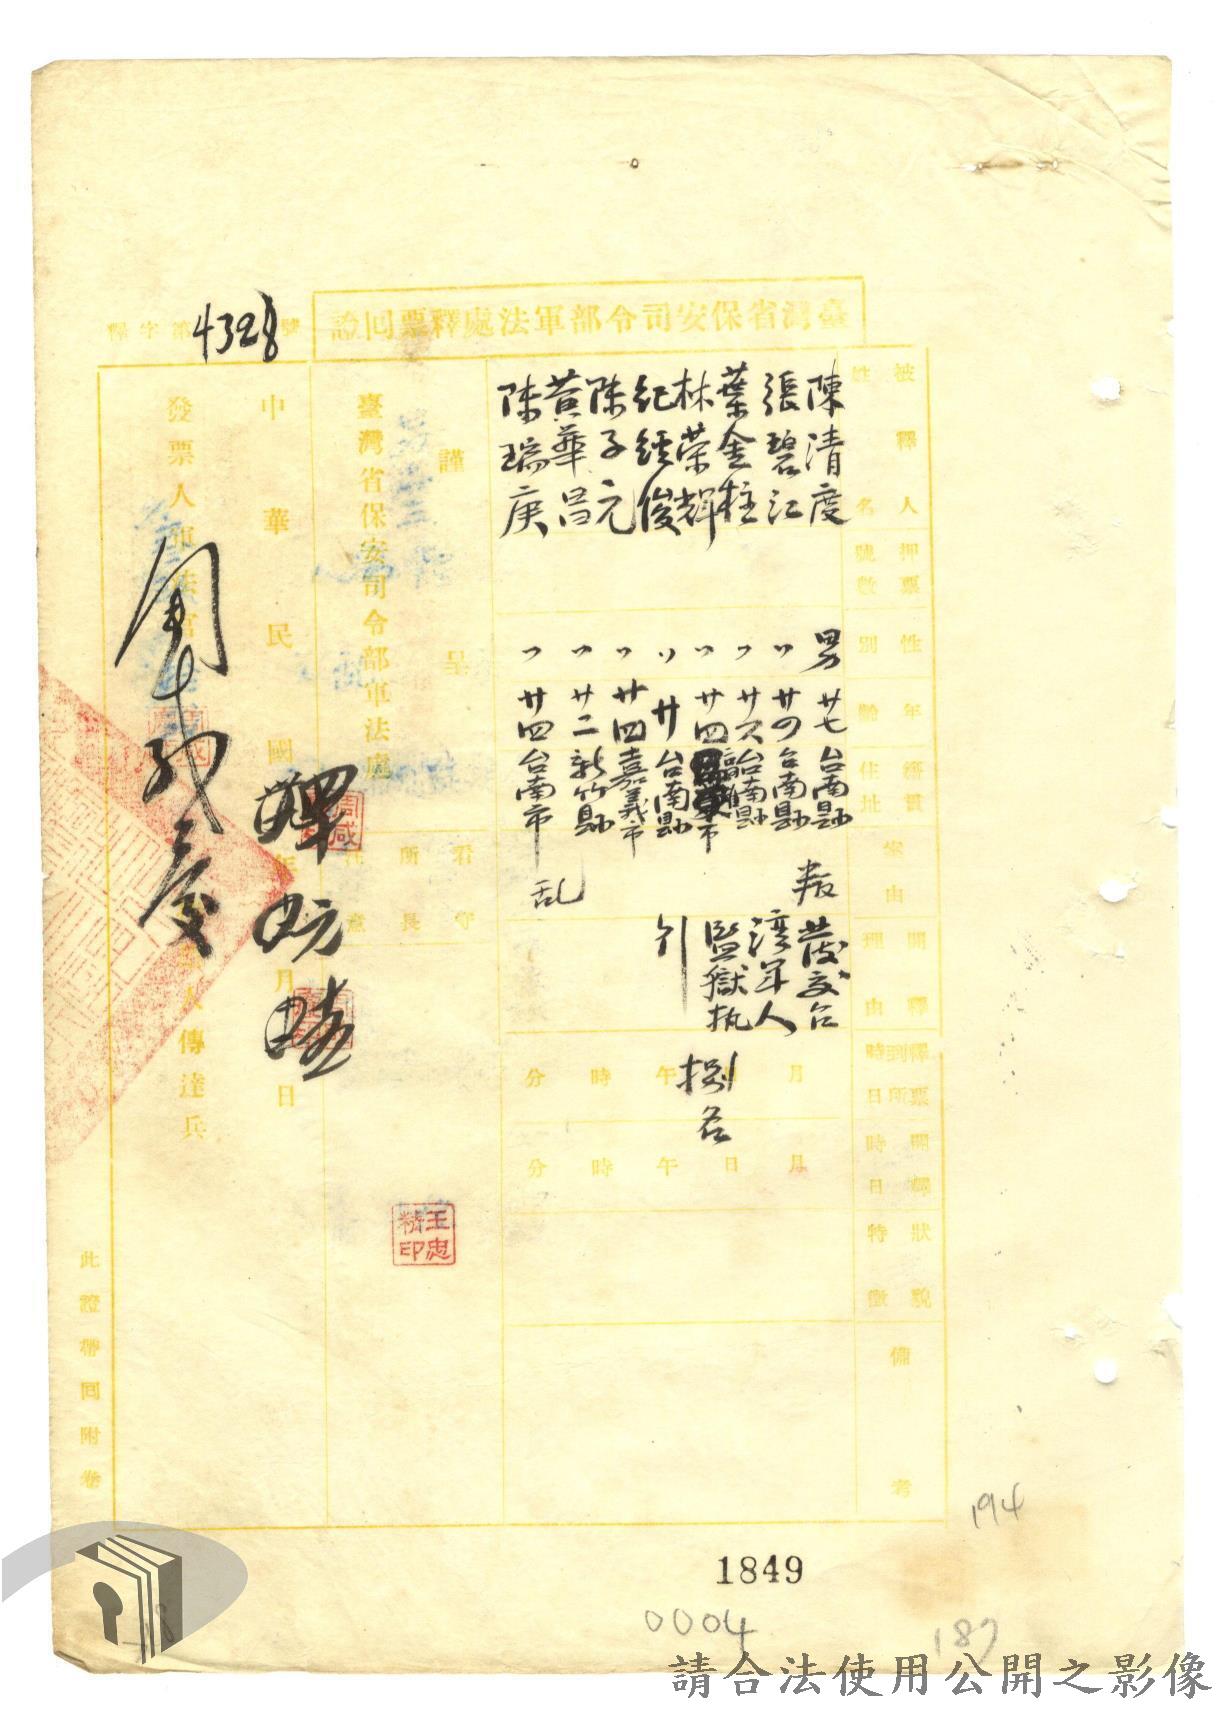 臺灣省保安司令部軍法處釋票回證
被釋人姓名
押票號數
性別
年齡
籍貫住址
案由
開釋理由
釋票到所時日
開釋時日
狀貌特徵
備考
陳清度 男 廿七 台南縣
張碧江 〃 廿四 台南縣
葉金柱 〃 廿六 台南縣
林荣輝 〃 廿四 市
紀經俊 〃 廿 台南縣
陈子元 〃 廿四 嘉義市
黃華昌 〃 廿二 新竹縣
陈瑞庚 〃 廿四 台南市
叛乱
發交台
湾軍人
監獄执
行
捌名
月日午時分
月日午時分
謹呈
臺灣省保安司令部軍法處
看守所長
王忠
印
中華民國年月日
發票人軍法官
人傳達兵
釋字第4328號
此證帶回附卷
194
1849
0004
187
請合法使用公開之影像